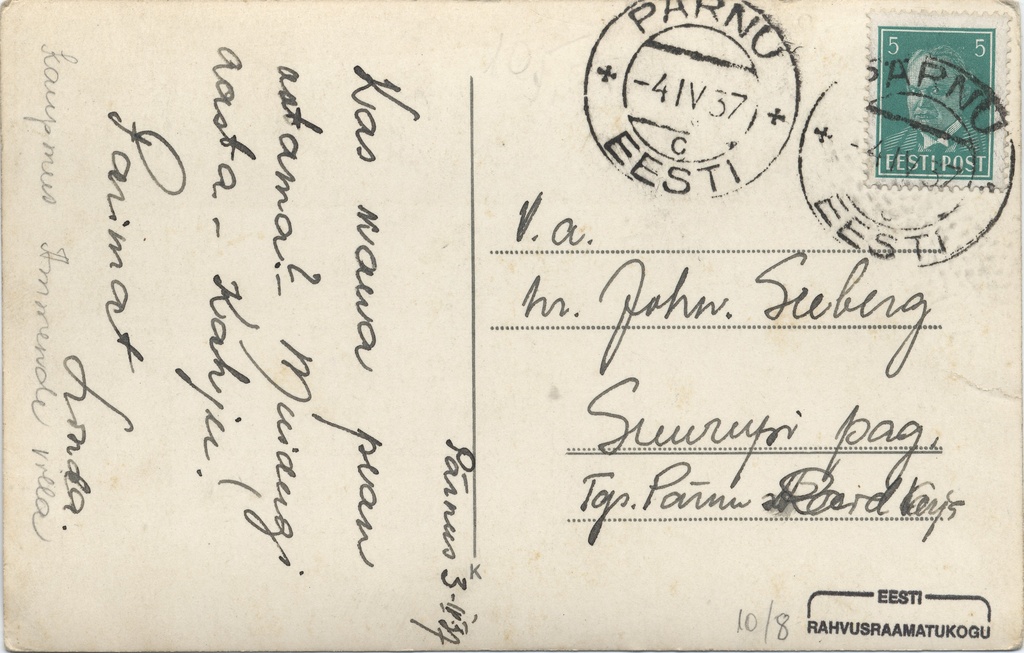 Kas wana pean
ootama? – Muidugi
aasta – Kahju.
Parimat
Linda.
Pärnus 3-IV 37
kaupmees Ammende villa
PÄRNU
-4 IV 37
C
EESTI
5 5
EESTI POST
PÄRNU
-4 IV 37
C
EESTI
V.a.
hr. Joh. Seeberg
Suurupi pag.
Tgs. Pärnu
K
10/8
EESTI
RAHVUSRAAMATUKOGU